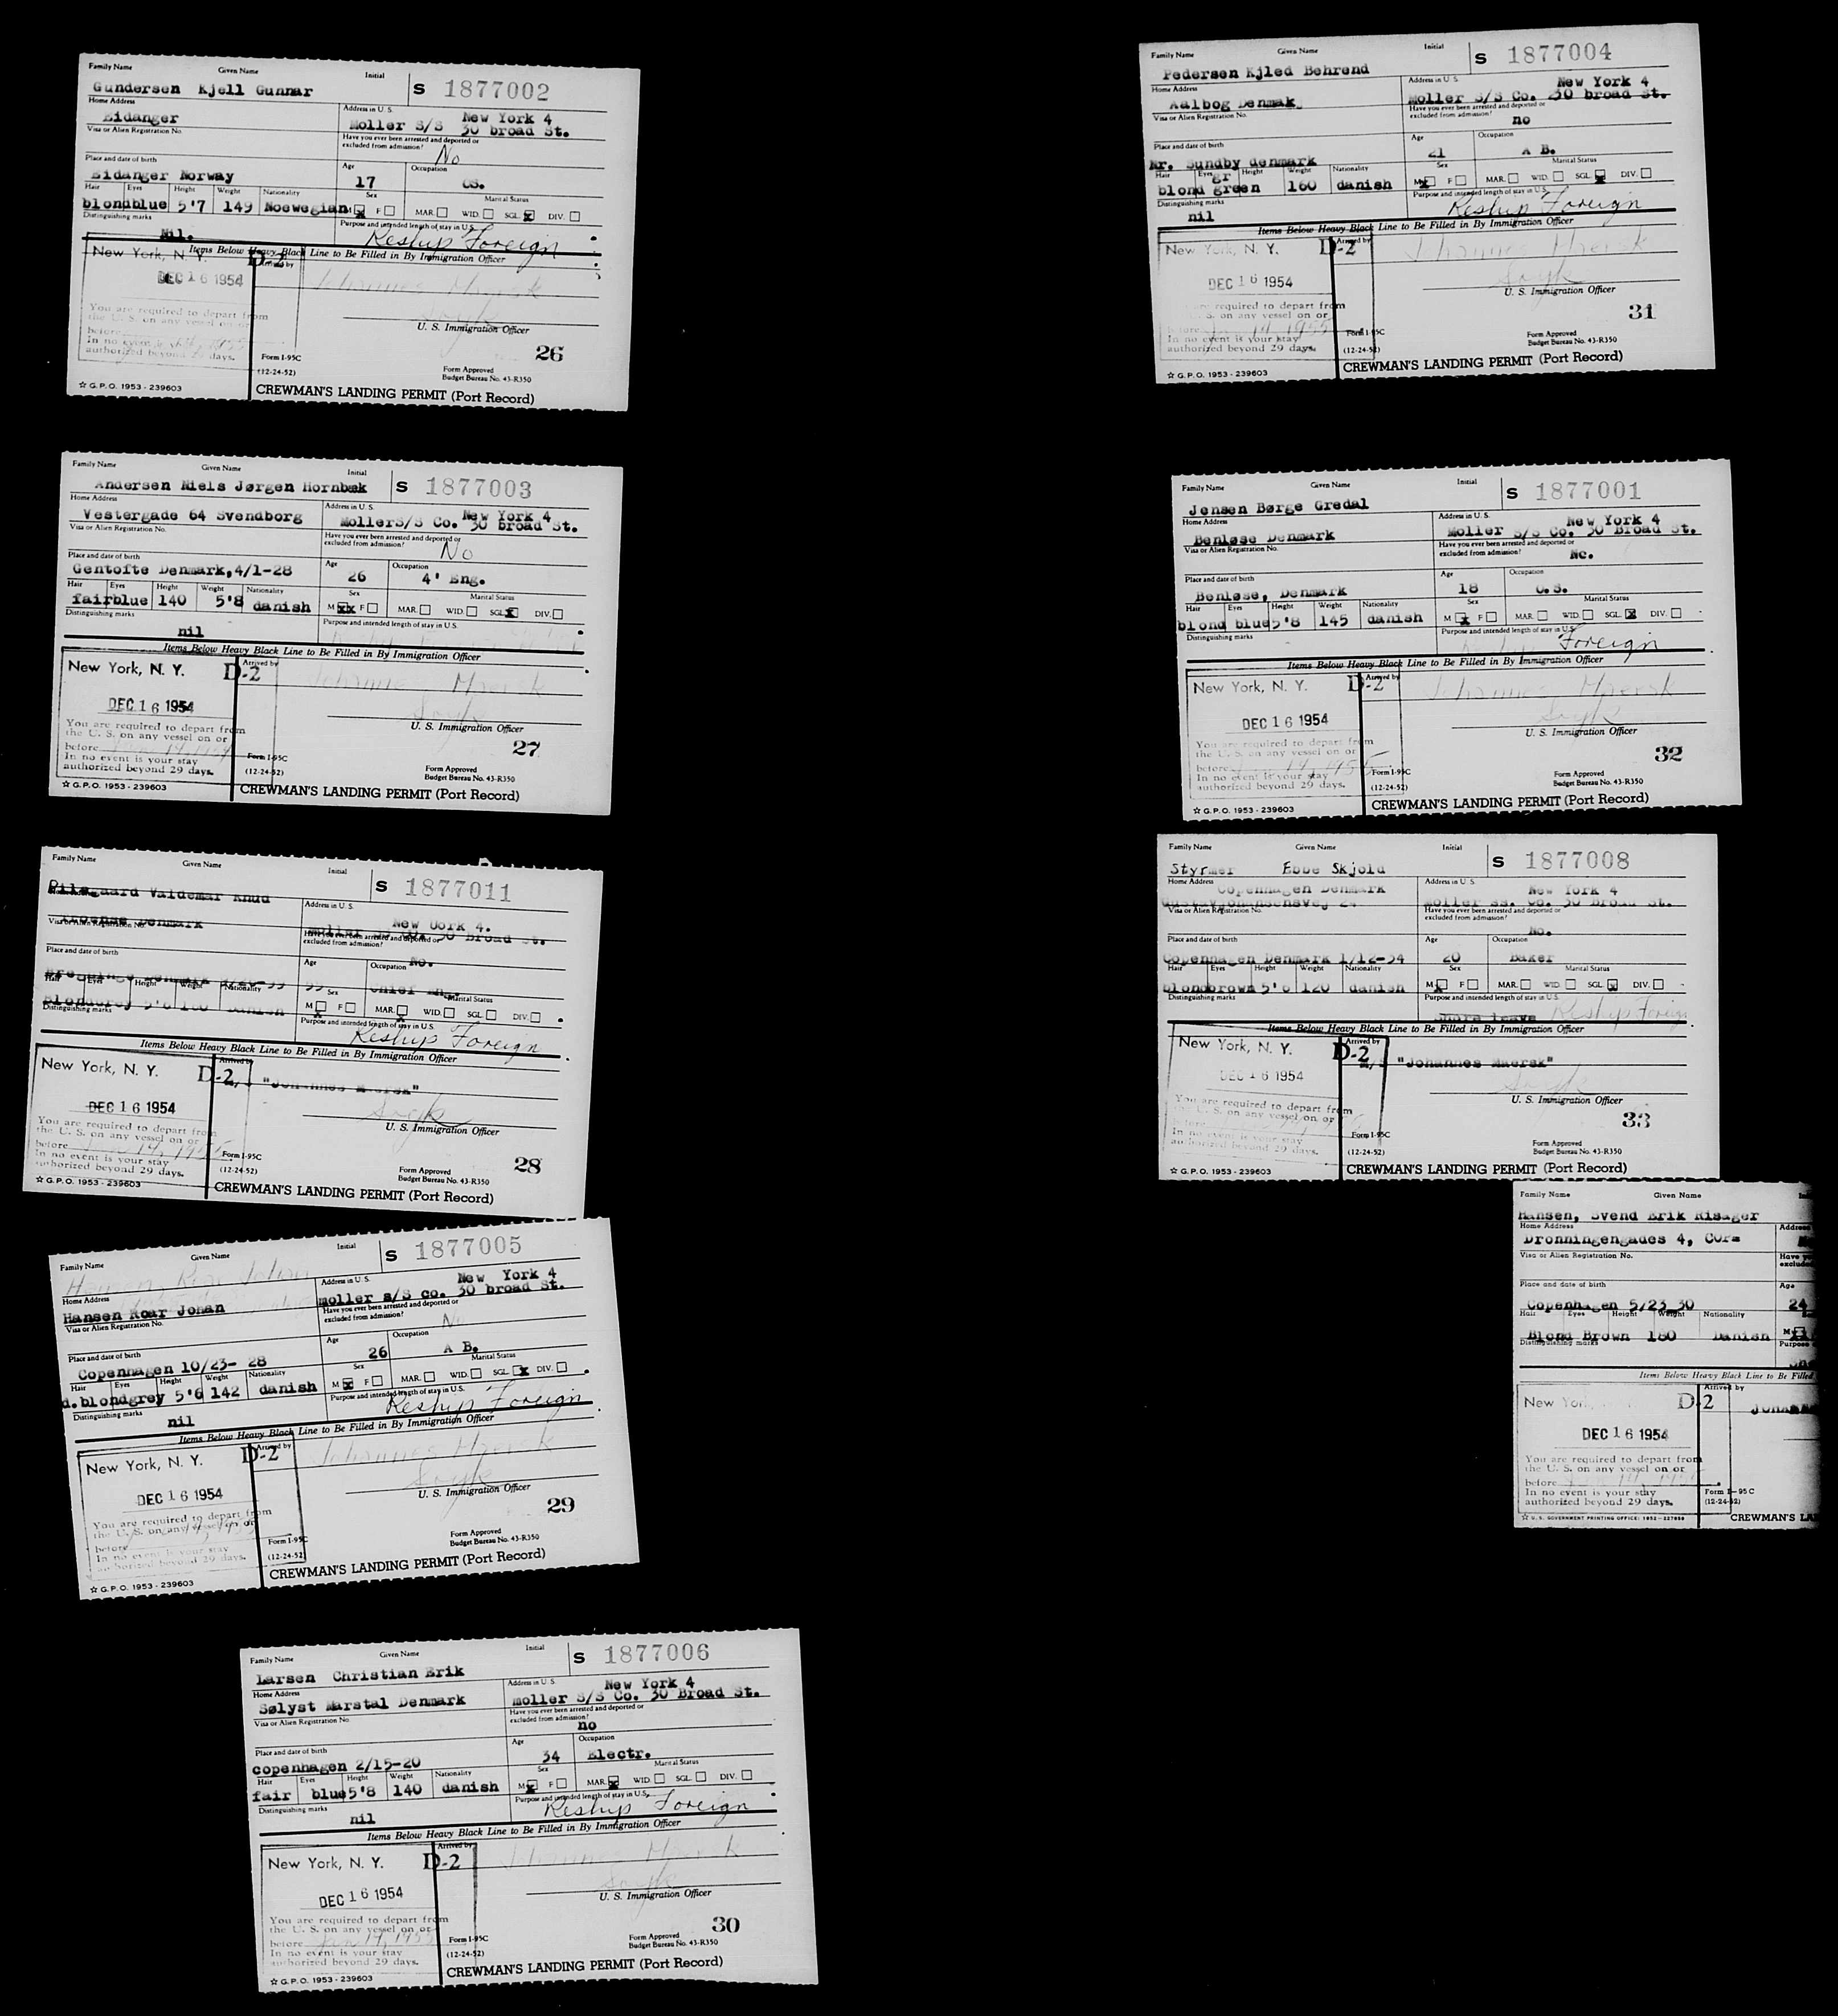 Family Name Given Name Initial
Gundersen Kjell Gunnar S 1877002
Home Address Address in U.S.
Eidanger New York 4
Moller S/S 30 broad St.
Visa or Alien Registration No. Have you ever been arrested and deported or
excluded from admission? No
Place and date of birth Age Occupation
Eidanger Norway 17 OS.
Hair Eyes Height Weight Nationality Sex Marital Status
blond blue 5'7 149 Noewegian M X F MAR. WID. SGL. X DIV.
Distinguishing marks Purpose and intended length of stay in U.S.
Nil. Reship Foreign
Items Below Heavy Black Line to Be Filled in By Immigration Officer
New York, N. Y. D-2 Arrived by
Johannes Maersk
DEC 16 1954
You are required to depart from
the U. S. on any vessel on or
before
U. S. Immigration Officer
In no event is your stay
authorized beyond 29 days.
26
Form I-95C
(12-24-52)
Form Approved
Budget Bureau No. 43-R350
☆ G.P.O. 1953-239603
CREWMAN'S LANDING PERMIT (Port Record)
Family Name Given Name Initial
Andersen Niels Jørgen Hornbæk S 1877003
Home Address Address in U.S.
Vestergade 64 Svendborg New York 4
MollerS/S Co. 30 broad St.
Visa or Alien Registration No. Have you ever been arrested and deported or
excluded from admission? No
Place and date of birth Age Occupation
Gentofte Denmark,4/1-28 26 4' Eng.
Hair Eyes Height Weight Nationality Sex Marital Status
fair blue 140 5'8 danish M XX F MAR. WID. SGL. X DIV.
Distinguishing marks Purpose and intended length of stay in U.S.
nil
Items Below Heavy Black Line to Be Filled in By Immigration Officer
New York, N. Y. D-2 Arrived by
Johannes Maersk
DEC 16 1954
You are required to depart from
the U. S. on any vessel on or
before
U. S. Immigration Officer
In no event is your stay
authorized beyond 29 days.
27
Form I-95C
(12-24-52)
Form Approved
Budget Bureau No. 43-R350
☆ G.P.O. 1953-239603
CREWMAN'S LANDING PERMIT (Port Record)
Family Name Given Name Initial
Pilegaard Valdemar Knud S 1877011
Address in U.S.
Denmark New Uork 4.
30 Broad St.
Visa or Alien Registration No. Have you ever been arrested and deported or
excluded from admission? No.
Place and date of birth Age Occupation
Chief
Hair Eyes Height Weight Nationality Sex Marital Status
Blond grey M F MAR. X WID. SGL. DIV.
Distinguishing marks Purpose and intended length of stay in U.S.
Reship Foreign
Items Below Heavy Black Line to Be Filled in By Immigration Officer
New York, N. Y. D-2 Arrived by
"Johannes Maersk"
DEC 16 1954
You are required to depart from
the U. S. on any vessel on or
before
U. S. Immigration Officer
In no event is your stay
authorized beyond 29 days.
28
Form I-95C
(12-24-52)
Form Approved
Budget Bureau No. 43-R350
☆ G.P.O. 1953-239603
CREWMAN'S LANDING PERMIT (Port Record)
Family Name Given Name Initial
Hansen, Roar Johan S 1877005
Home Address Address in U.S.
Hansen Roar Johan New York 4
moller s/S co. 30 broad St.
Visa or Alien Registration No. Have you ever been arrested and deported or
excluded from admission? No
Place and date of birth Age Occupation
Copenhagen 10/23- 28 26 A B.
Hair Eyes Height Weight Nationality Sex Marital Status
d.blond grey 5'6 142 danish M X F MAR. WID. SGL. X DIV.
Distinguishing marks Purpose and intended length of stay in U.S.
nil Reship Foreign
Items Below Heavy Black Line to Be Filled in By Immigration Officer
New York, N. Y. D-2 Arrived by
Johannes Maersk
DEC 16 1954
You are required to depart from
the U. S. on any vessel on or
before
U. S. Immigration Officer
In no event is your stay
authorized beyond 29 days.
29
Form I-95C
(12-24-52)
Form Approved
Budget Bureau No. 43-R350
☆ G.P.O. 1953-239603
CREWMAN'S LANDING PERMIT (Port Record)
Family Name Given Name Initial
Larsen Christian Erik S 1877006
Home Address Address in U.S.
Sølyst Marstal Denmark New York 4
moller S/S Co. 30 Broad St.
Visa or Alien Registration No. Have you ever been arrested and deported or
excluded from admission? no
Place and date of birth Age Occupation
copenhagen 2/15-20 34 Electr.
Hair Eyes Height Weight Nationality Sex Marital Status
fair blue 5'8 140 danish M X F MAR. X WID. SGL. DIV.
Distinguishing marks Purpose and intended length of stay in U.S.
nil Reship Foreign
Items Below Heavy Black Line to Be Filled in By Immigration Officer
New York, N. Y. D-2 Arrived by
Johannes Maersk
DEC 16 1954
You are required to depart from
the U. S. on any vessel on or
before Jan 14, 1955
U. S. Immigration Officer
In no event is your stay
authorized beyond 29 days.
30
Form I-95C
(12-24-52)
Form Approved
Budget Bureau No. 43-R350
☆ G.P.O. 1953-239603
CREWMAN'S LANDING PERMIT (Port Record)
Family Name Given Name Initial
Pedersen Kjled Behrend S 1877004
Home Address Address in U.S.
Aalbog Denmak New York 4
Moller S/S Co. 30 broad St.
Visa or Alien Registration No. Have you ever been arrested and deported or
excluded from admission? no
Place and date of birth Age Occupation
Nr. Sundby denmark 21 A B.
Hair Eyes Height Weight Nationality Sex Marital Status
gr
blond green 160 danish M X F MAR. WID. SGL. X DIV.
Distinguishing marks Purpose and intended length of stay in U.S.
nil Reship Foreign
Items Below Heavy Black Line to Be Filled in By Immigration Officer
New York, N. Y. D-2 Arrived by
Johannes Maersk
DEC 16 1954
required to depart from
S. on any vessel on or
before Jan 14, 1955
U. S. Immigration Officer
In no event is your stay
authorized beyond 29 days.
31
Form I-95C
(12-24-52)
Form Approved
Budget Bureau No. 43-R350
☆ G.P.O. 1953-239603
CREWMAN'S LANDING PERMIT (Port Record)
Family Name Given Name Initial
Jensen Børge Gredal S 1877001
Home Address Address in U.S.
Benløse Denmark New York 4
Moller S/S Co. 30 Broad St.
Visa or Alien Registration No. Have you ever been arrested and deported or
excluded from admission? No.
Place and date of birth Age Occupation
Benløse, Denmark 18 O.S.
Hair Eyes Height Weight Nationality Sex Marital Status
blond blue 5'8 145 danish M X F MAR. WID. SGL. X DIV.
Distinguishing marks Purpose and intended length of stay in U.S.
Foreign
Items Below Heavy Black Line to Be Filled in By Immigration Officer
New York, N. Y. D-2 Arrived by
Johannes Maersk
DEC 16 1954
You are required to depart from
the U. S. on any vessel on or
before
U. S. Immigration Officer
In no event is your stay
authorized beyond 29 days.
32
Form I-95C
(12-24-52)
Form Approved
Budget Bureau No. 43-R350
☆ G.P.O. 1953-239603
CREWMAN'S LANDING PERMIT (Port Record)
Family Name Given Name Initial
Styrmer Ebbe Skjold S 1877008
Home Address Address in U.S.
Copenhagen Denmark New York 4
Moller ss. Co. 30 Broad St.
Visa or Alien Registration No. Have you ever been arrested and deported or
excluded from admission? No.
Place and date of birth Age Occupation
Copenhagen Denmark 1/12-34 20 Baker
Hair Eyes Height Weight Nationality Sex Marital Status
blond brown 5'6 120 danish M X F MAR. WID. SGL. X DIV.
Distinguishing marks Purpose and intended length of stay in U.S.
Reship Foreign
Items Below Heavy Black Line to Be Filled in By Immigration Officer
New York, N. Y. D-2 Arrived by
"Johannes Maersk"
DEC 16 1954
You are required to depart from
the U. S. on any vessel on or
before
U. S. Immigration Officer
In no event is your stay
authorized beyond 29 days.
33
Form I-95C
(12-24-52)
Form Approved
Budget Bureau No. 43-R350
☆ G.P.O. 1953-239603
CREWMAN'S LANDING PERMIT (Port Record)
Family Name Given Name
Hansen, Svend Erik Risager
Home Address Address
Dronningengades 4, COP=
Visa or Alien Registration No. Have
Place and date of birth Age
Copenhagen 5/23 30 24
Hair Eyes Height Weight Nationality
Blond Brown 160 Danish M
Distinguishing marks Purpose
Items Below Heavy Black Line to Be Filled
New York D-2 Arrived by
DEC 16 1954
You are required to depart from
the U. S. on any vessel on or
before
In no event is your stay
authorized beyond 29 days.
Form I-95C
(12-24-52)
☆ U. S. GOVERNMENT PRINTING OFFICE: 1952
CREWMAN'S